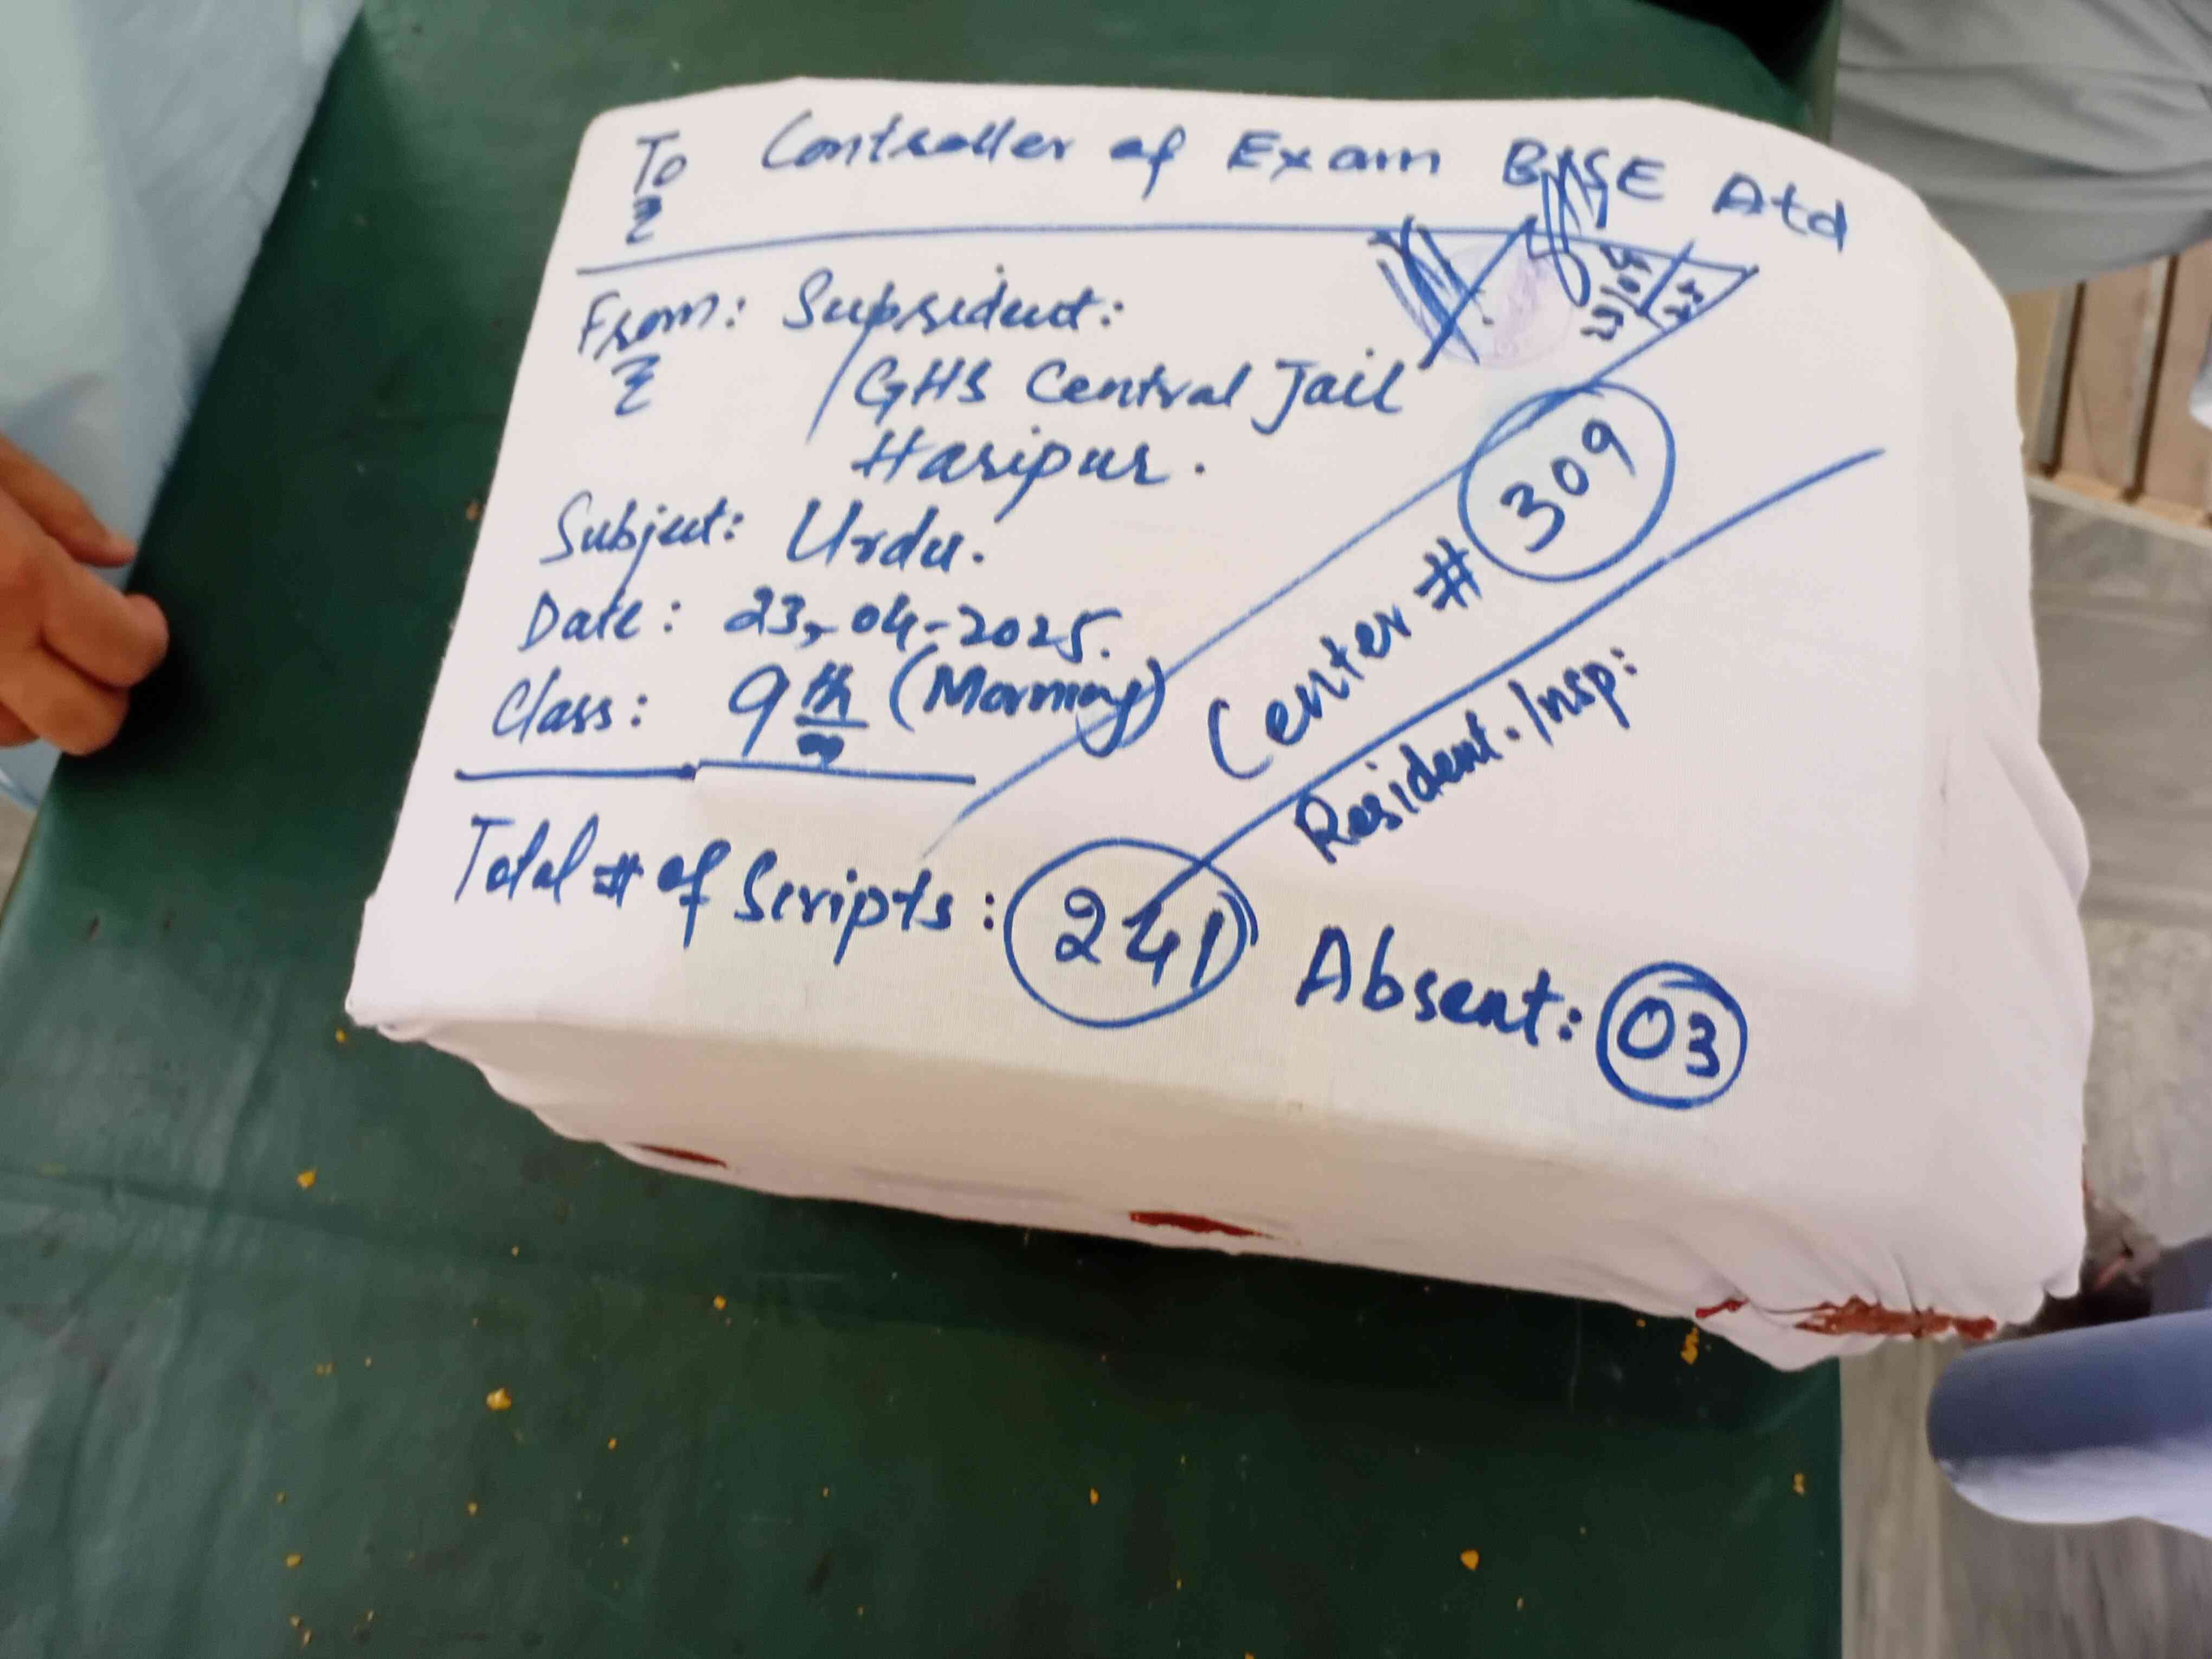 To Controller of Exam BISE Atd
From: Supsident:
GHS Central Jail
Haripur.
Subject: Urdu.
Date: 23-04-2025.
Class: 9th (Morning)
Center # 309
Resident. Insp:
Total # of Scripts: 241 Absent: 03